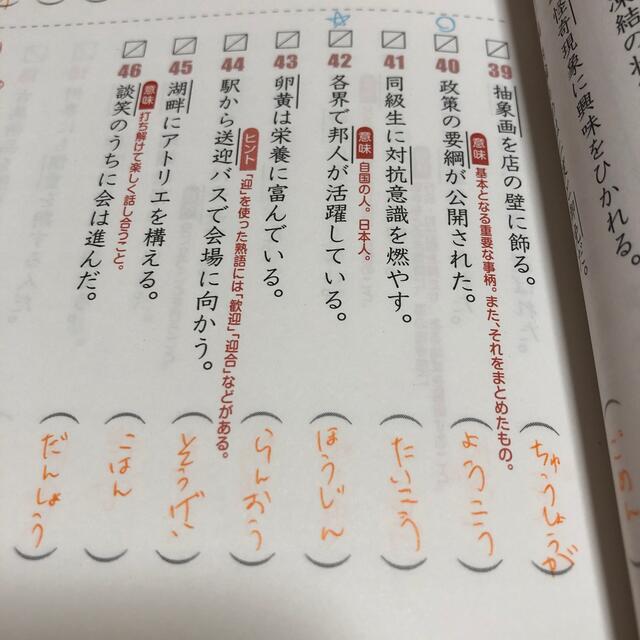 凍結の
怪奇現象に興味をひかれる。
ごめん
39 抽象画を店の壁に飾る。
ちゅうしょうが
40 政策の要綱が公開された。
意味 基本となる重要な事柄。また、それをまとめたもの。
ようこう
41 同級生に対抗意識を燃やす。
たいこう
42 各界で邦人が活躍している。
意味 自国の人。日本人。
ほうじん
43 卵黄は栄養に富んでいる。
らんおう
44 駅から送迎バスで会場に向かう。
ヒント 「迎」を使った熟語には「歓迎」「迎合」などがある。
そうげい
45 湖畔にアトリエを構える。
こはん
46 談笑のうちに会は進んだ。
意味 打ち解けて楽しく話し合うこと。
だんしょう